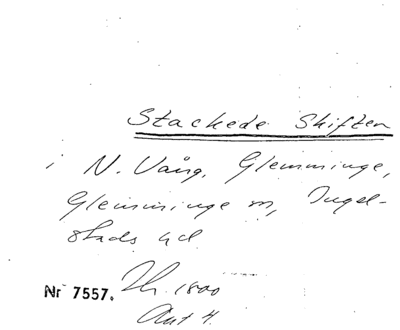 Stackede Skiften
i N. Vång, Glemminge,
Glemminge sn, Ingel-
stads hd
Nr 7557. Th. 1800
Ant 4.